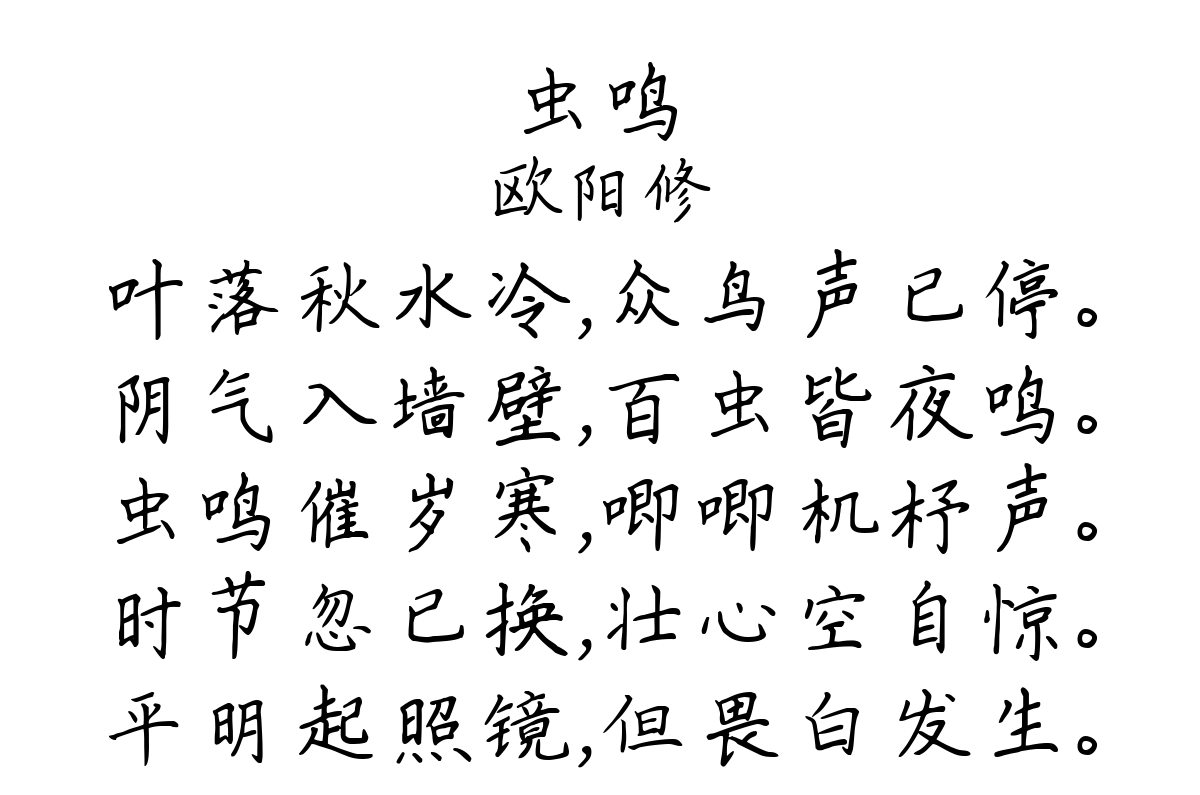 虫鸣
欧阳修
叶落秋水冷,众鸟声已停。
阴气入墙壁,百虫皆夜鸣。
虫鸣催岁寒,唧唧机杼声。
时节忽已换,壮心空自惊。
平明起照镜,但畏白发生。